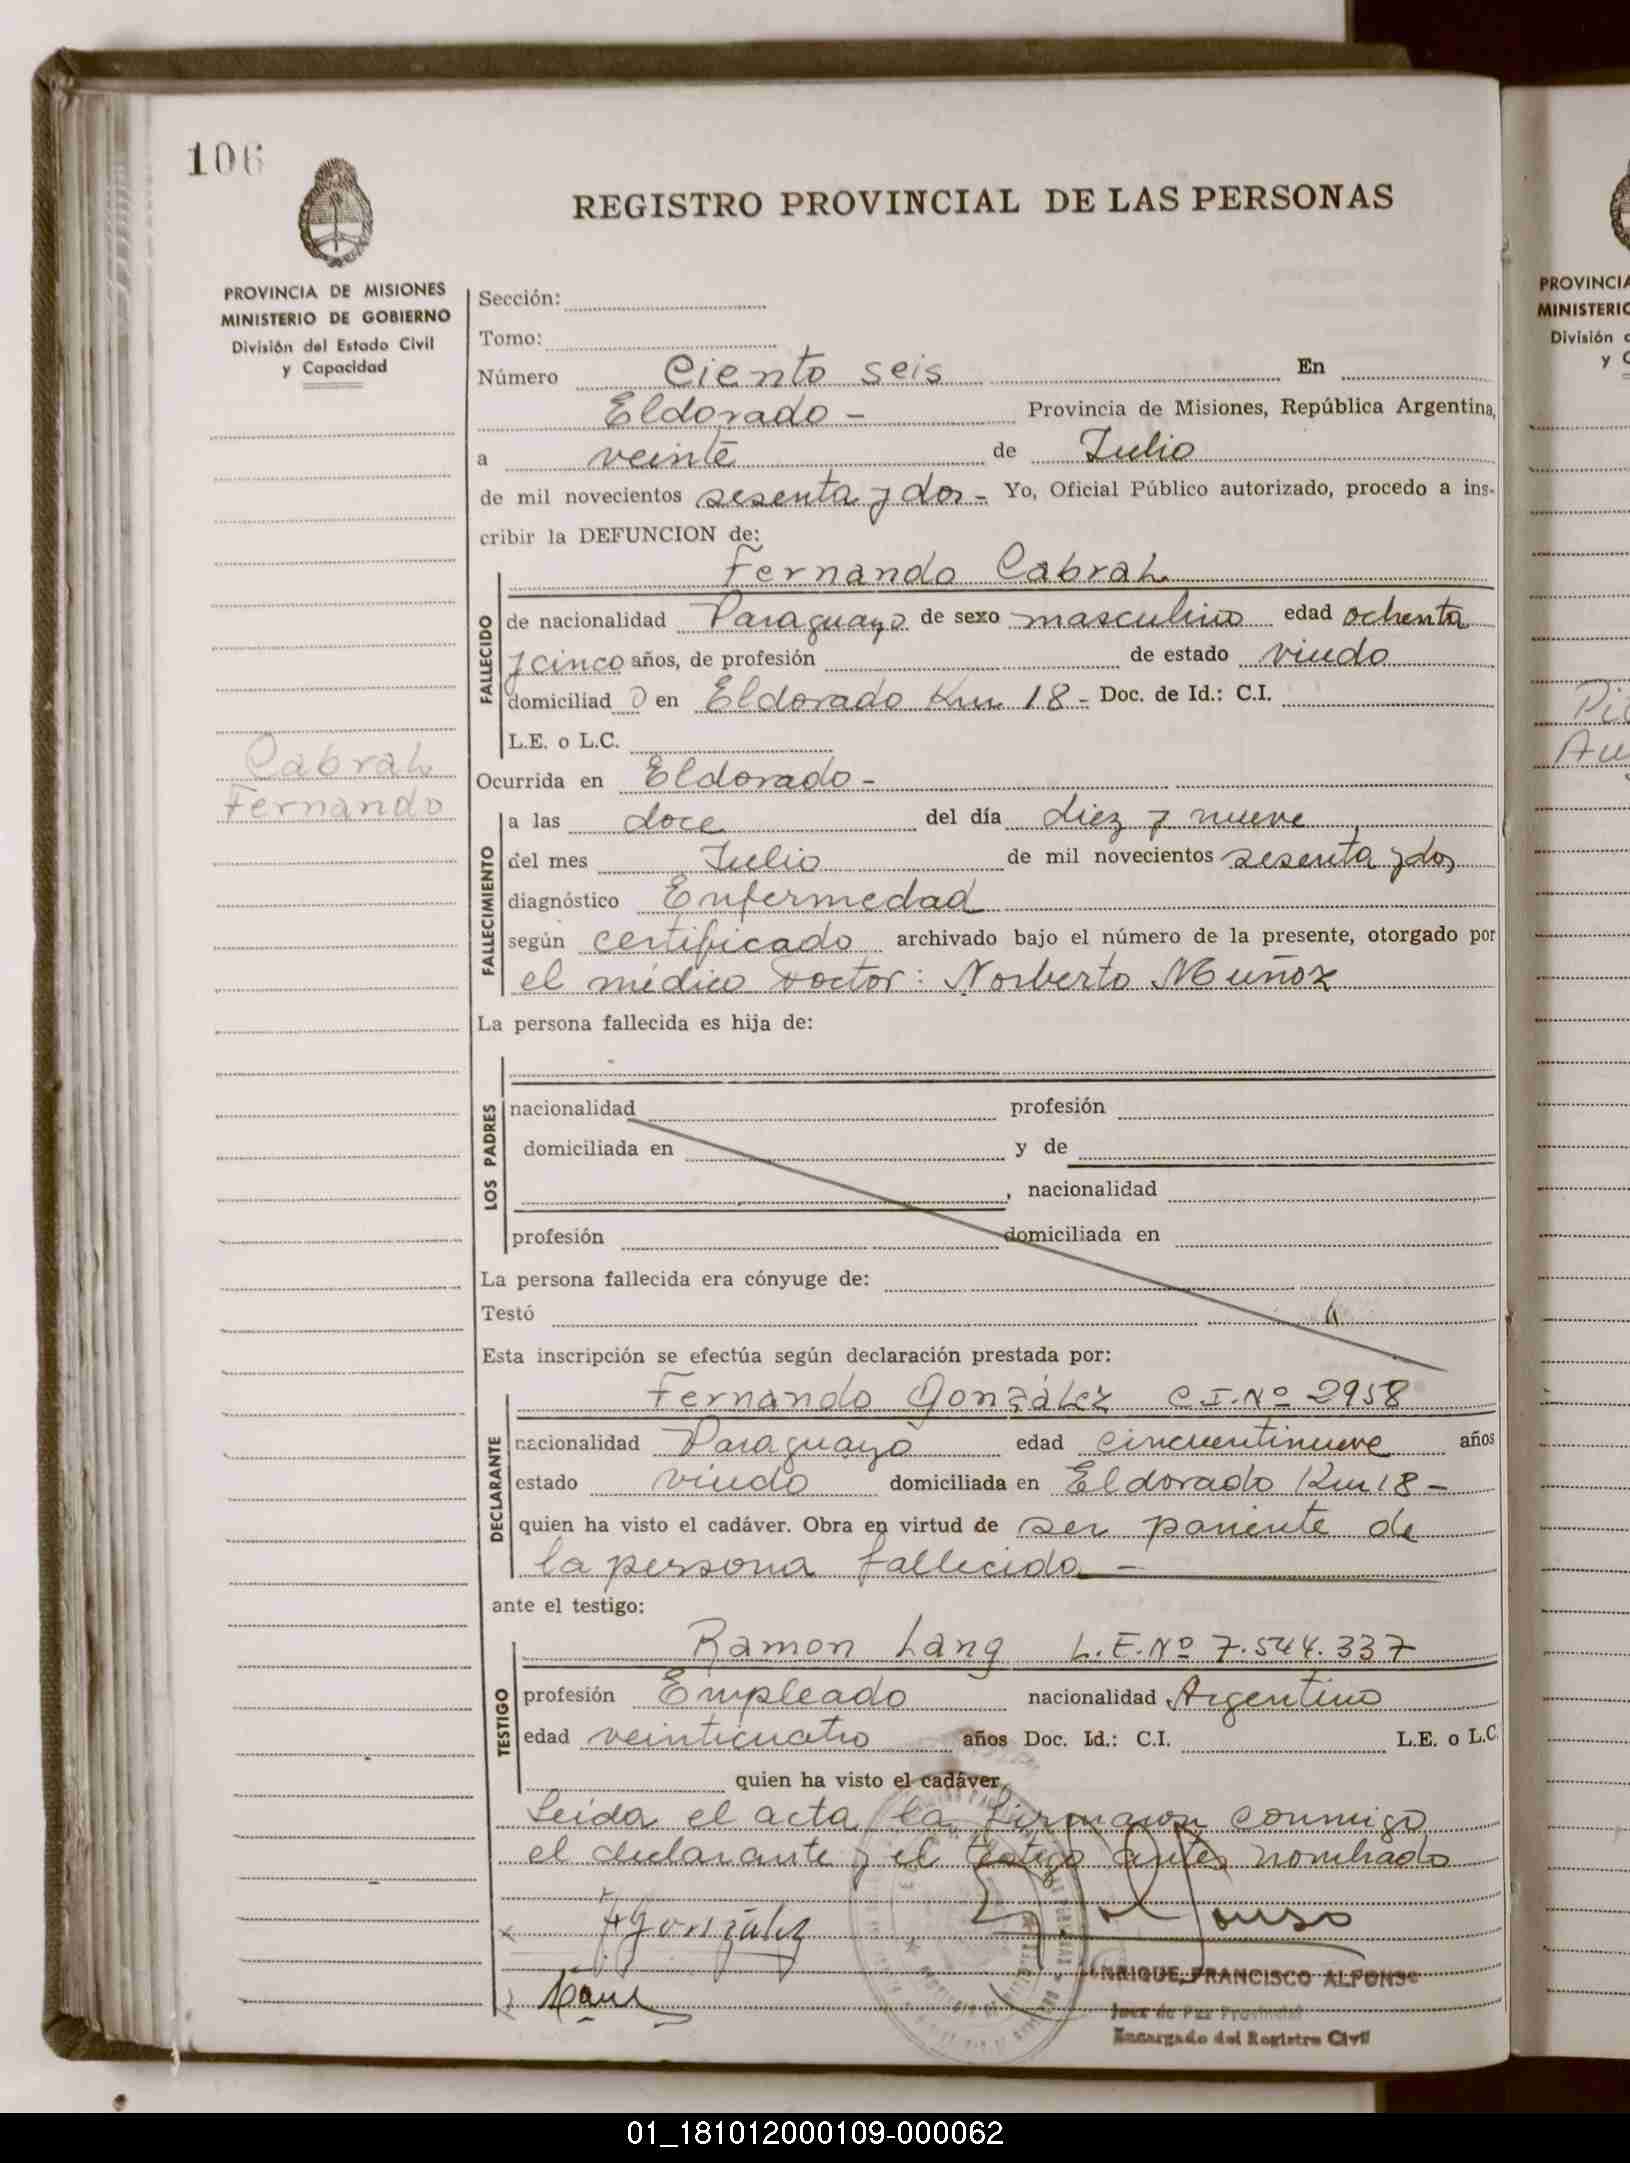 106
REGISTRO PROVINCIAL DE LAS PERSONAS
PROVINCIA DE MISIONES
MINISTERIO DE GOBIERNO
División del Estado Civil
y Capacidad
Sección:
Tomo:
Número Ciento seis En
Eldorado - Provincia de Misiones, República Argentina,
a veinte de Julio
de mil novecientos sesenta y dos - Yo, Oficial Público autorizado, procedo a ins-
cribir la DEFUNCION de:
Fernando Cabral
FALLECIDO
de nacionalidad Paraguayo de sexo masculino edad ochenta
y cinco años, de profesión de estado viudo
domiciliad o en Eldorado Km 18 - Doc. de Id.: C.I.
L.E. o L.C.
Cabral
Fernando
Ocurrida en Eldorado -
FALLECIMIENTO
a las doce del día diez y nueve
del mes Julio de mil novecientos sesenta y dos
diagnóstico Enfermedad
según certificado archivado bajo el número de la presente, otorgado por
el médico Doctor: Norberto Muñoz
La persona fallecida es hija de:
LOS PADRES
nacionalidad profesión
domiciliada en y de
, nacionalidad
profesión domiciliada en
La persona fallecida era cónyuge de:
Testó
Esta inscripción se efectúa según declaración prestada por:
Fernando González C.I.Nº 2958
DECLARANTE
nacionalidad Paraguayo edad cincuentinueve años
estado viudo domiciliada en Eldorado Km 18 -
quien ha visto el cadáver. Obra en virtud de ser pariente de
la persona fallecida -
ante el testigo:
Ramon Lang L.E.Nº 7.544.337
TESTIGO
profesión Empleado nacionalidad Argentino
edad veinticuatro años Doc. Id.: C.I. L.E. o L.C.
quien ha visto el cadáver.
Leida el acta la firmaron conmigo
el declarante y el testigo antes nombrado
x F González
ENRIQUE FRANCISCO ALFONSO
Juez de Paz Provincial
Encargado del Registro Civil
PROVINCIA
MINISTERIO
División d
y C
01_181012000109-000062